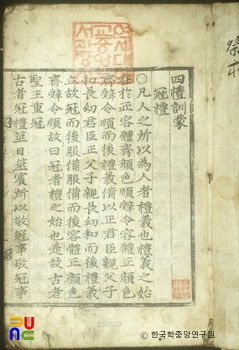 四禮訓蒙
冠禮
○凡人之所以為人者禮義也禮義之始
在於正容體齊顔色順辭令容體正顔色
齊辭令順而後禮義備以正君臣親父子
和長幼君臣正父子親長幼和而後禮義
立故冠而後服備服備而後容體正顔色
齊辭令順故曰冠者禮之始也是故古者
聖王重冠
古者冠禮筮日筮賓所以敬冠事敬冠事
한국학중앙연구원